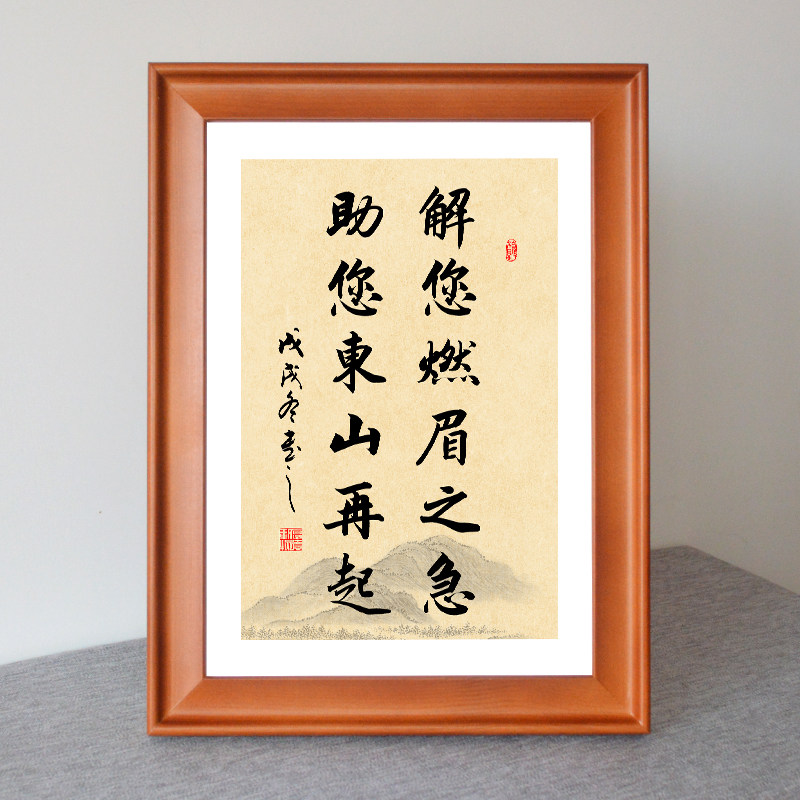 解您燃眉之急
助您東山再起
戊戌冬書之